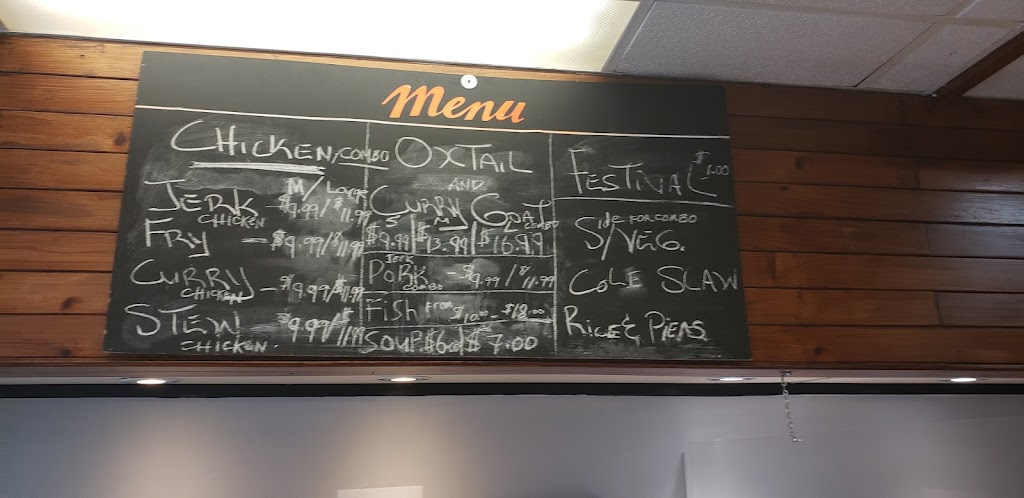 Menu
CHICKEN/COMBO
M/Large
JERK CHICKEN -$9.99/$11.99
FRY -$9.99/$11.99
CURRY CHICKEN -$9.99/$11.99
STEW CHICKEN $9.99/$11.99
OXTAIL
AND
CURRY GOAT
COMBO
S M L
$9.99 $13.99 $16.99
JERK PORK COMBO -$9.99/$11.99
Fish From $10.00-$18.00
SOUP $6.00 $7.00
FESTIVAL $1.00
Side FOR COMBO
S/VEG.
COLE SLAW
RICE & PIEAS